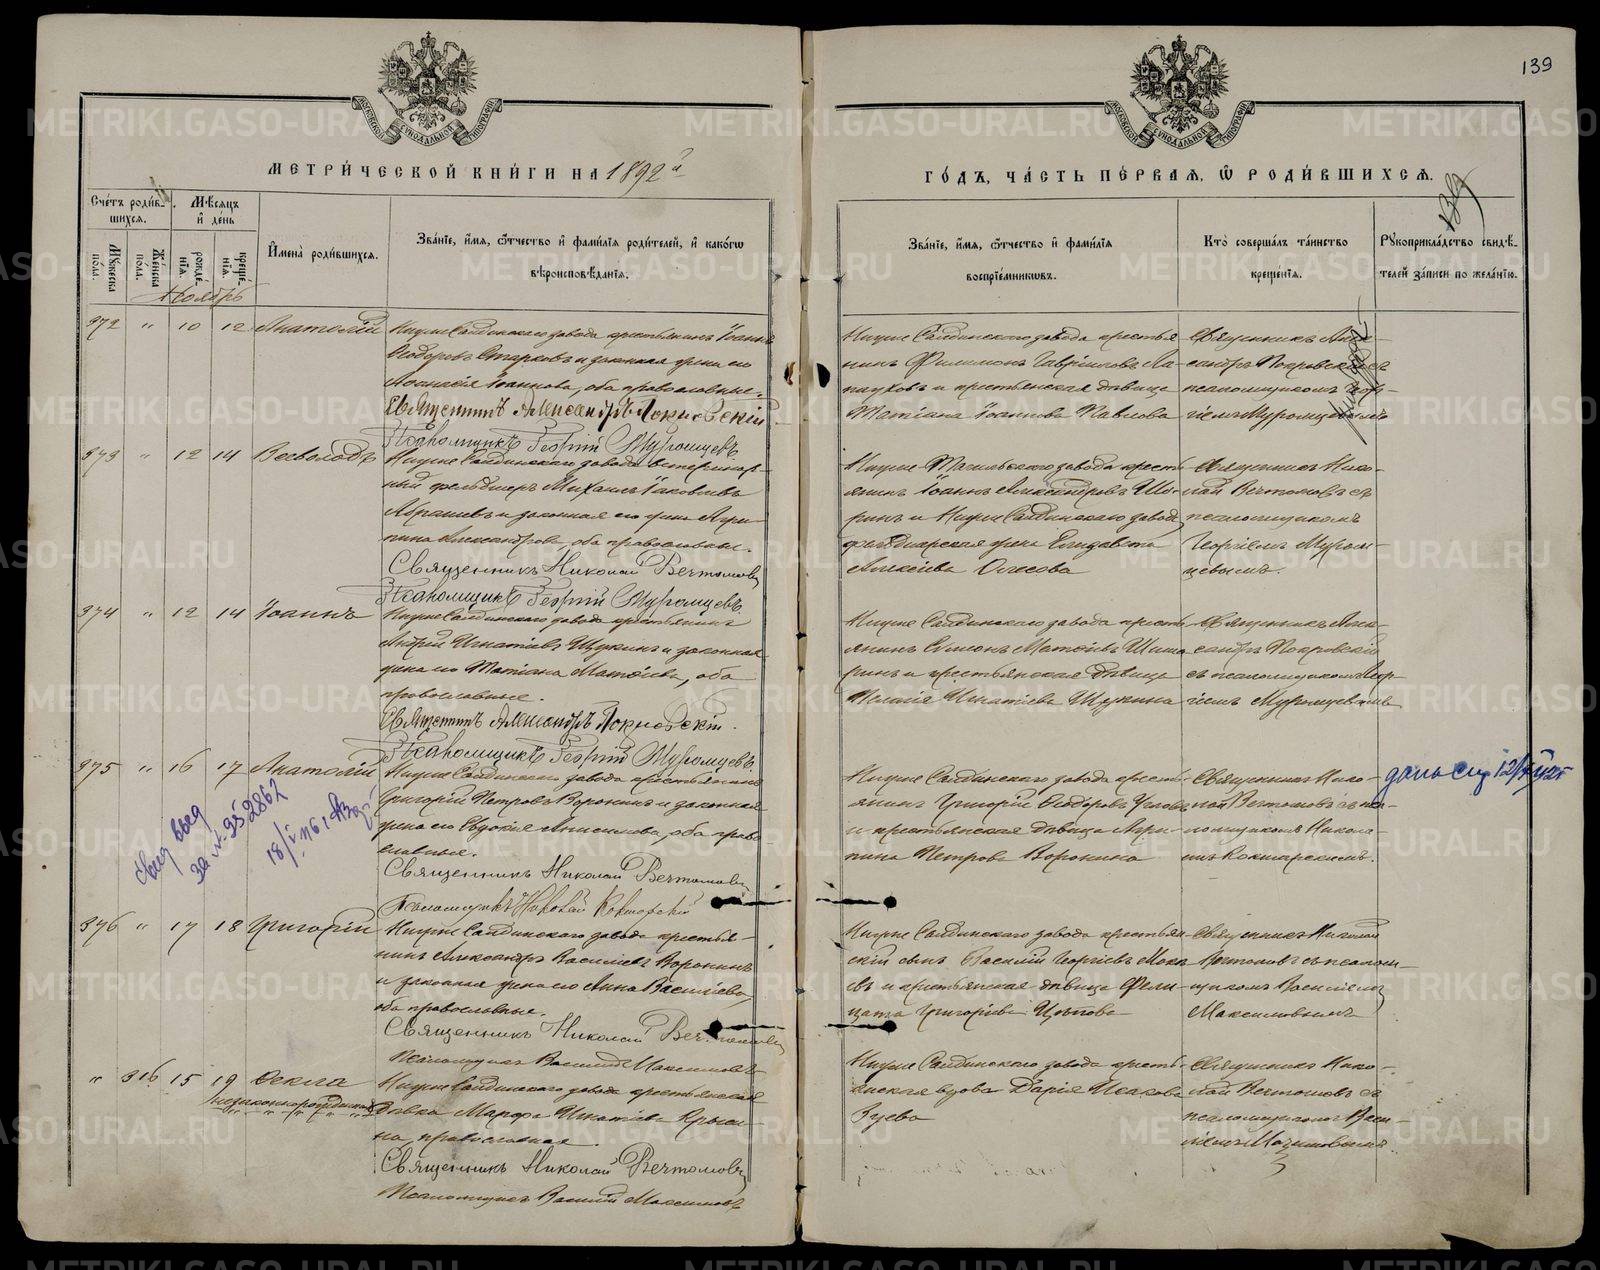 139
МЕТРИ́ЧЕСКОЙ КНИ́ГИ НА 1892 й
ГО́ДЪ, ЧА́СТЬ ПЕ́РВАЯ, Ѿ РОДИ́ВШИХСЯ.
Сче́тъ роди́в-
шихся.
Мѣсяцъ
и де́нь
Му́жеска по́ла.
Же́нска по́ла.
рожде́нія.
креще́нія.
Имена̀ роди́вшихся.
Зва́ніе, и́мя, ѻ҆́тчество и фами́лія роди́телей, и како́гѡ
вѣроисповѣ́данія.
Зва́ніе, и́мя, ѻ҆́тчество и фами́лія
воспріе́мниковъ.
Кто̀ соверша́лъ та́инство
креще́нія.
Рукоприкла́дство свидѣ́-
телей за́писи по жела́нію.
Ноябрь
372 " 10 12 Анатолій
Нижне Салдинскаго завода крестьянинъ Іоаннъ
Ѳеодоровъ Старковъ и законная жена его
Іоаннова, оба православные.
Священникъ Александръ Покровскій
Псаломщикъ Георгій Муромцевъ
Нижне Салдинскаго завода крестья-
нинъ Филимонъ Гавриловъ Ла-
пуховъ и крестьянская дѣвица
Татіана Іоаннова Павлова
Священникъ Алек-
сандръ Покровскій съ
псаломщикомъ Геор-
гіемъ Муромцевымъ
373 " 12 14 Всеволодъ
Нижне Салдинскаго завода ветеринар-
ный фельдшеръ Михаилъ Іаковлевъ
Абрашевъ и законная его жена Агри-
пина Александрова, оба православные.
Священникъ Николай Вечтомовъ
Псаломщикъ Георгій Муромцевъ
Нижне-Тагильскаго завода кресть-
янинъ Іоаннъ Александровъ Шо-
ринъ и Нижне Салдинскаго завода
фельдшерская жена Елисавета
Алексіева
Священникъ Нико-
лай Вечтомовъ съ
псаломщикомъ
Георгіемъ Муром-
цевымъ.
374 " 12 14 Іоаннъ
Нижне Салдинскаго завода крестьянинъ
Андрей Игнатіевъ Щукинъ и законная
жена его Татіана Матѳіева, оба
православные.
Священникъ Александръ Покровскій.
Псаломщикъ Георгій Муромцевъ
Нижне Салдинскаго завода кресть-
янинъ Симеонъ Матѳіевъ Шиша-
ринъ и крестьянская дѣвица
Игнатіева Щукина
Священникъ Алек-
сандръ Покровскій
съ псаломщикомъ Геор-
гіемъ Муромцевымъ
375 " 16 17 Анатолій
Нижне Салдинскаго завода крестьянинъ
Григорій Петровъ Воронинъ и законная
жена его Евдокія Анисимова, оба право-
славные.
Священникъ Николай Вечтомовъ
Псаломщикъ Николай Кокшарскій
Нижне Салдинскаго завода кресть-
янинъ Григорій Ѳеодоровъ
и крестьянская дѣвица Агри-
пина Петрова Воронина
Священникъ Нико-
лай Вечтомовъ съ пса-
ломщикомъ Никола-
емъ Кокшарскимъ.
Свид выд
за № 2867
376 " 17 18 Григорій
Нижне Салдинскаго завода крестья-
нинъ Александръ Василіевъ Воронинъ
и законная жена его Анна Василіева,
оба православные.
Священникъ Николай Вечтомовъ
Псаломщикъ Василій Максимовъ
Нижне Салдинскаго завода крестьян-
скій сынъ Василій Георгіевъ Моке-
евъ и крестьянская дѣвица Фели-
цата Григоріева
Священникъ Николай
Вечтомовъ съ псалом-
щикомъ Василіемъ
Максимовымъ
" 316 15 19 Ѳекла
незаконнорожденная
Нижне Салдинскаго завода крестьянская
дѣвка Марѳа Игнатіева Крыси-
на, православная.
Священникъ Николай Вечтомовъ
Псаломщикъ Василій Максимовъ
Нижне Салдинскаго завода кресть-
янская вдова Дарія Исакова
Зуева
Священникъ Нико-
лай Вечтомовъ съ
псаломщикомъ Васи-
ліемъ Максимовымъ